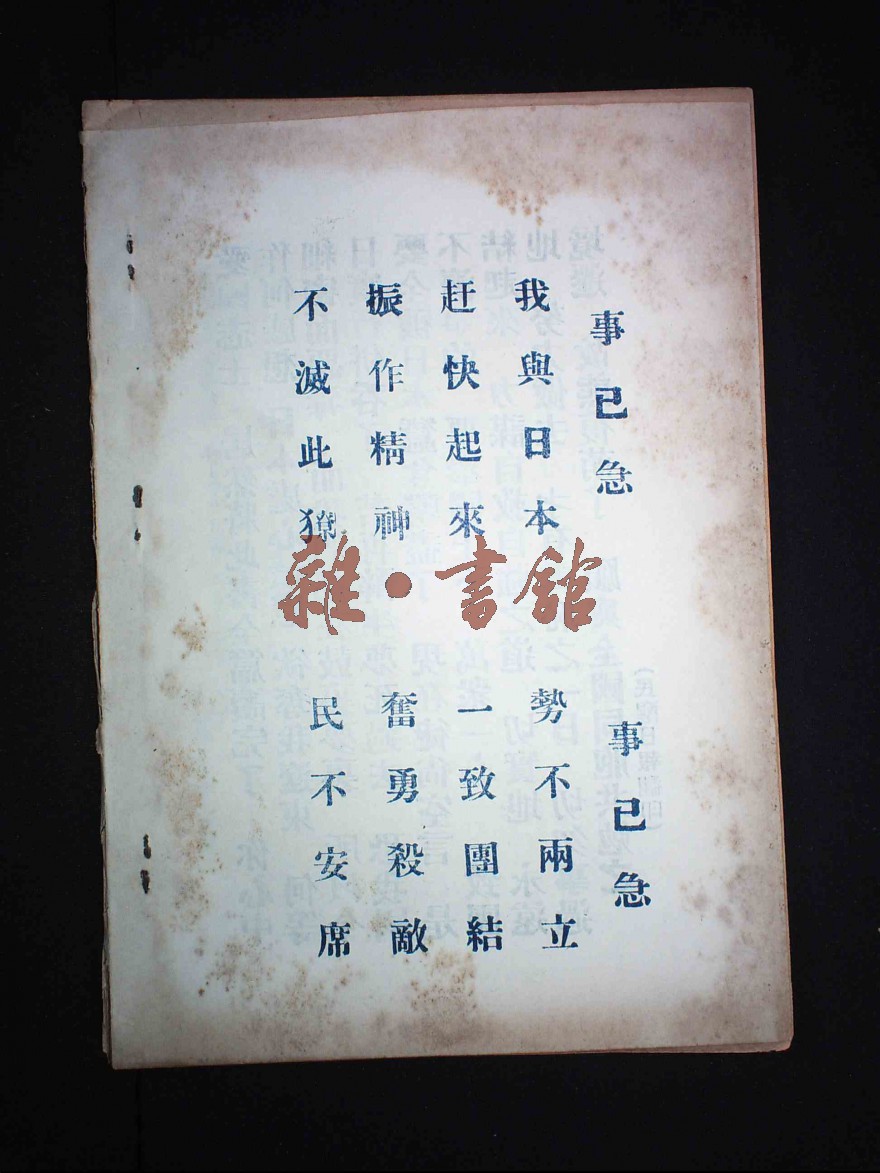 事已急 事已急
我與日本 勢不兩立
赶快起來 一致團結
振作精神 奮勇殺敵
不滅此獠 民不安席
雜·書舘